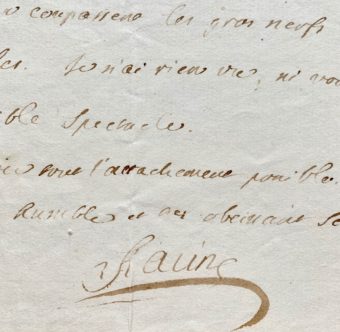 compassent les gros neufs
Je n'ai rien vu, ni
Spectacle.
tout l'attachement possible.
humble et obeissant
Racine